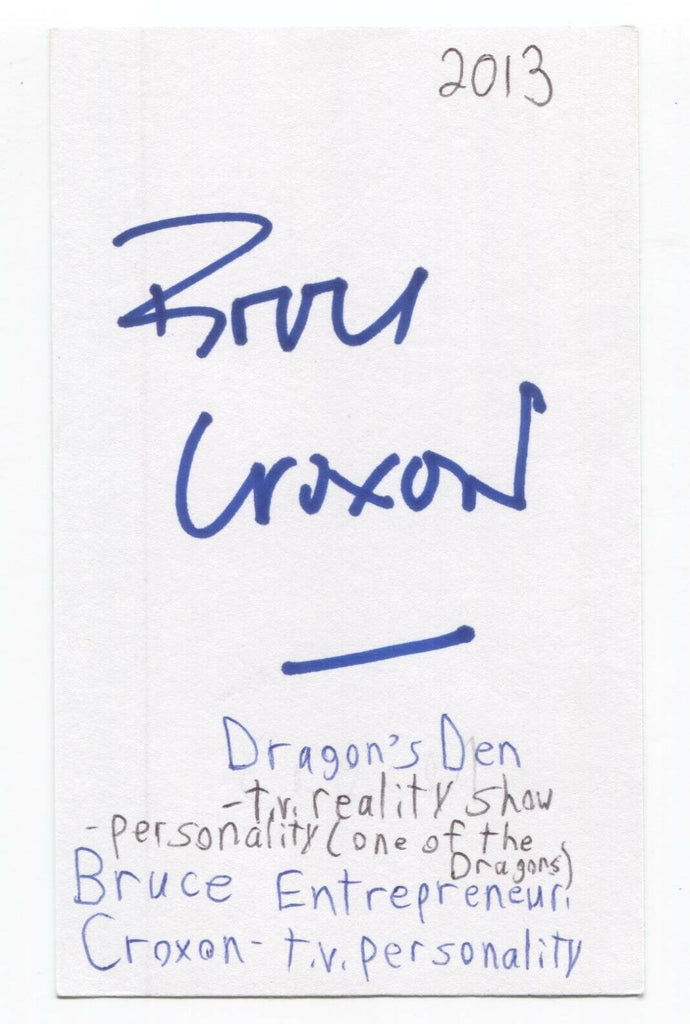 2013
Bruce
Croxon
Dragon's Den
-t.v. reality show
-personality (one of the
Dragons)
Bruce Entrepreneur.
Croxon- t.v. personality